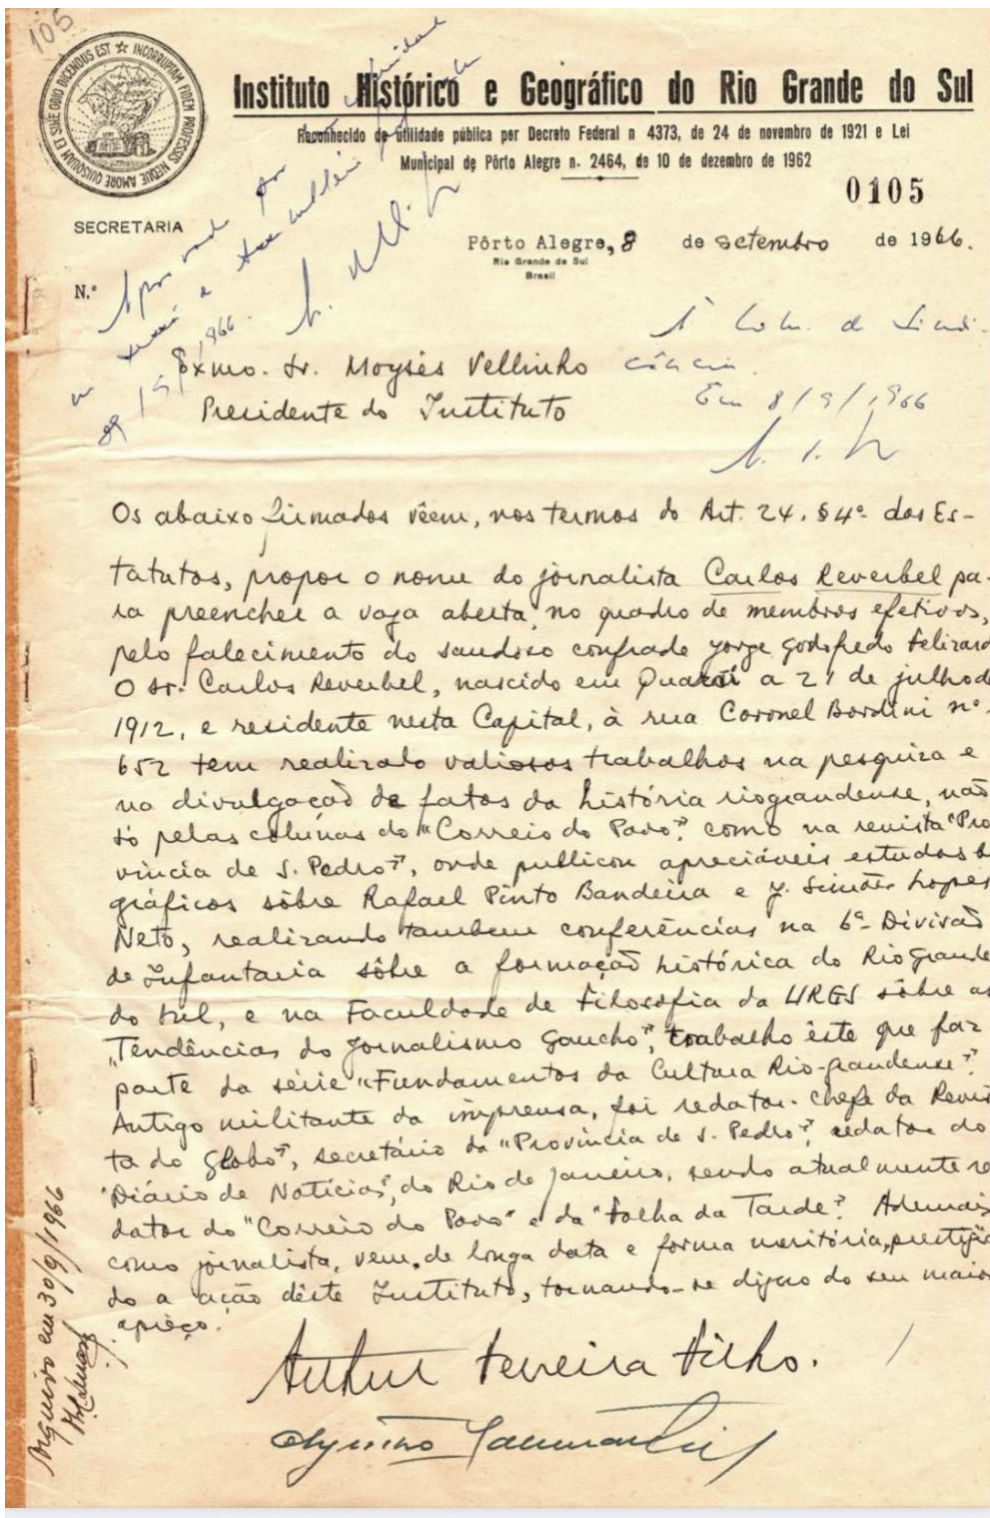 105
INCORRUPTAM FIDEM PROFESSIS NEQUE AMORE QUISQUAM ET SINE ODIO DICENDUS EST
Instituto Histórico e Geográfico do Rio Grande do Sul
Reconhecido de utilidade pública por Decreto Federal n 4373, de 24 de novembro de 1921 e Lei
Municipal de Pôrto Alegre n. 2464, de 10 de dezembro de 1962
0105
SECRETARIA
Pôrto Alegre, 8 de setembro de 1966.
Rio Grande do Sul
Brasil
N.º
Aprovado por
1966.
À Com. de Sindi-
cância.
Em 8/9/1966
Exmo. Sr. Moysés Vellinho
Presidente do Instituto
Os abaixo firmados vêem, nos termos do Art. 24. §4º. dos Es-
tatutos, propor o nome do jornalista Carlos Reverbel pa-
ra preencher a vaga aberta, no quadro de membros efetivos,
pelo falecimento do saudoso confrade Jorge Godofredo Felizard
O sr. Carlos Reverbel, nascido em Quaraí a 21 de julho de
1912, e residente nesta Capital, à rua Coronel Bordini nº.
652 tem realizado valiosos trabalhos na pesquiza e
na divulgação de fatos da história riograndense, não
só pelas colunas do "Correio do Povo", como na revista "Pro
vincia de S. Pedro", onde publicou apreciáveis estudos b
gráficos sôbre Rafael Pinto Bandeira e J. Simões Lopes
Neto, realizando tambem conferências na 6ª Divisão
de Infantaria sôbre a formação histórica do Rio Grande
do Sul, e na Faculdade de Filosofia da URGS sôbre as
"Tendências do Jornalismo Gaucho", trabalho êste que faz
parte da série "Fundamentos da Cultura Rio-grandense".
Antigo militante da imprensa, foi redator-chefe da Revis
ta do Globo", secretário da "Província de S. Pedro", redator do
"Diário de Notícias", do Rio de Janeiro, sendo atualmente re
dator do "Correio do Povo" e da "Folha da Tarde". Ademais
como jornalista, vem, de longa data e forma meritória, prestigia
do a ação dêste Instituto, tornando-se digno do seu maior
aprêço.
Arthur Ferreira Filho.
Arquive em 30/9/1966